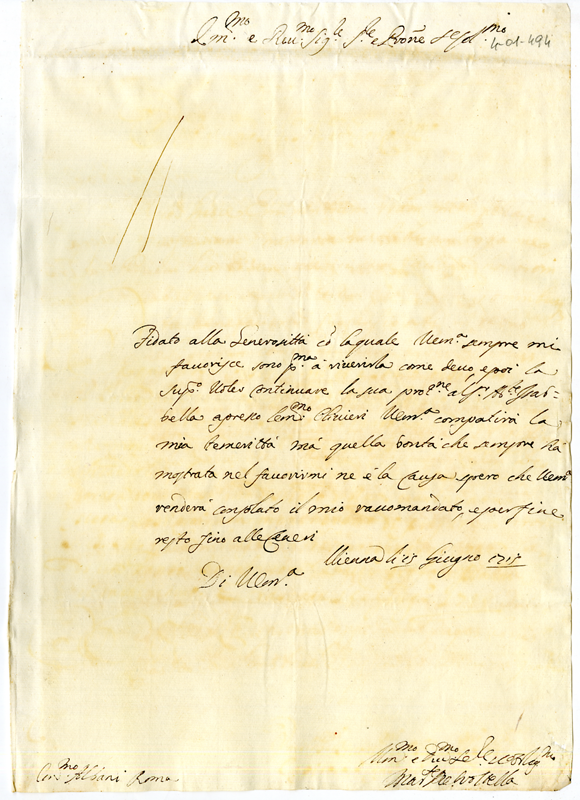 Em.mo e Rev.mo Sig.r S.re e Prone
4-01-494
Fidato alla Generosittà cõ laquale V.em.a sempre mi
favorisce sono p.ma à riverirla come devo, e poi la
sup.o voler continuare la sua pro.ne al S.r Ab.te
bella apresso l'em.mo V.em.a compatirà la
mia temerittà mà quella bontà che sempre hà
mostrata nel favorirmi ne é la causa spero che V.em.a
renderà consolato il mio racomandato, e per fine
resto fino alle Ceneri
Vienna li 15 Giugno 1715
Di V.em.a
Albani Roma